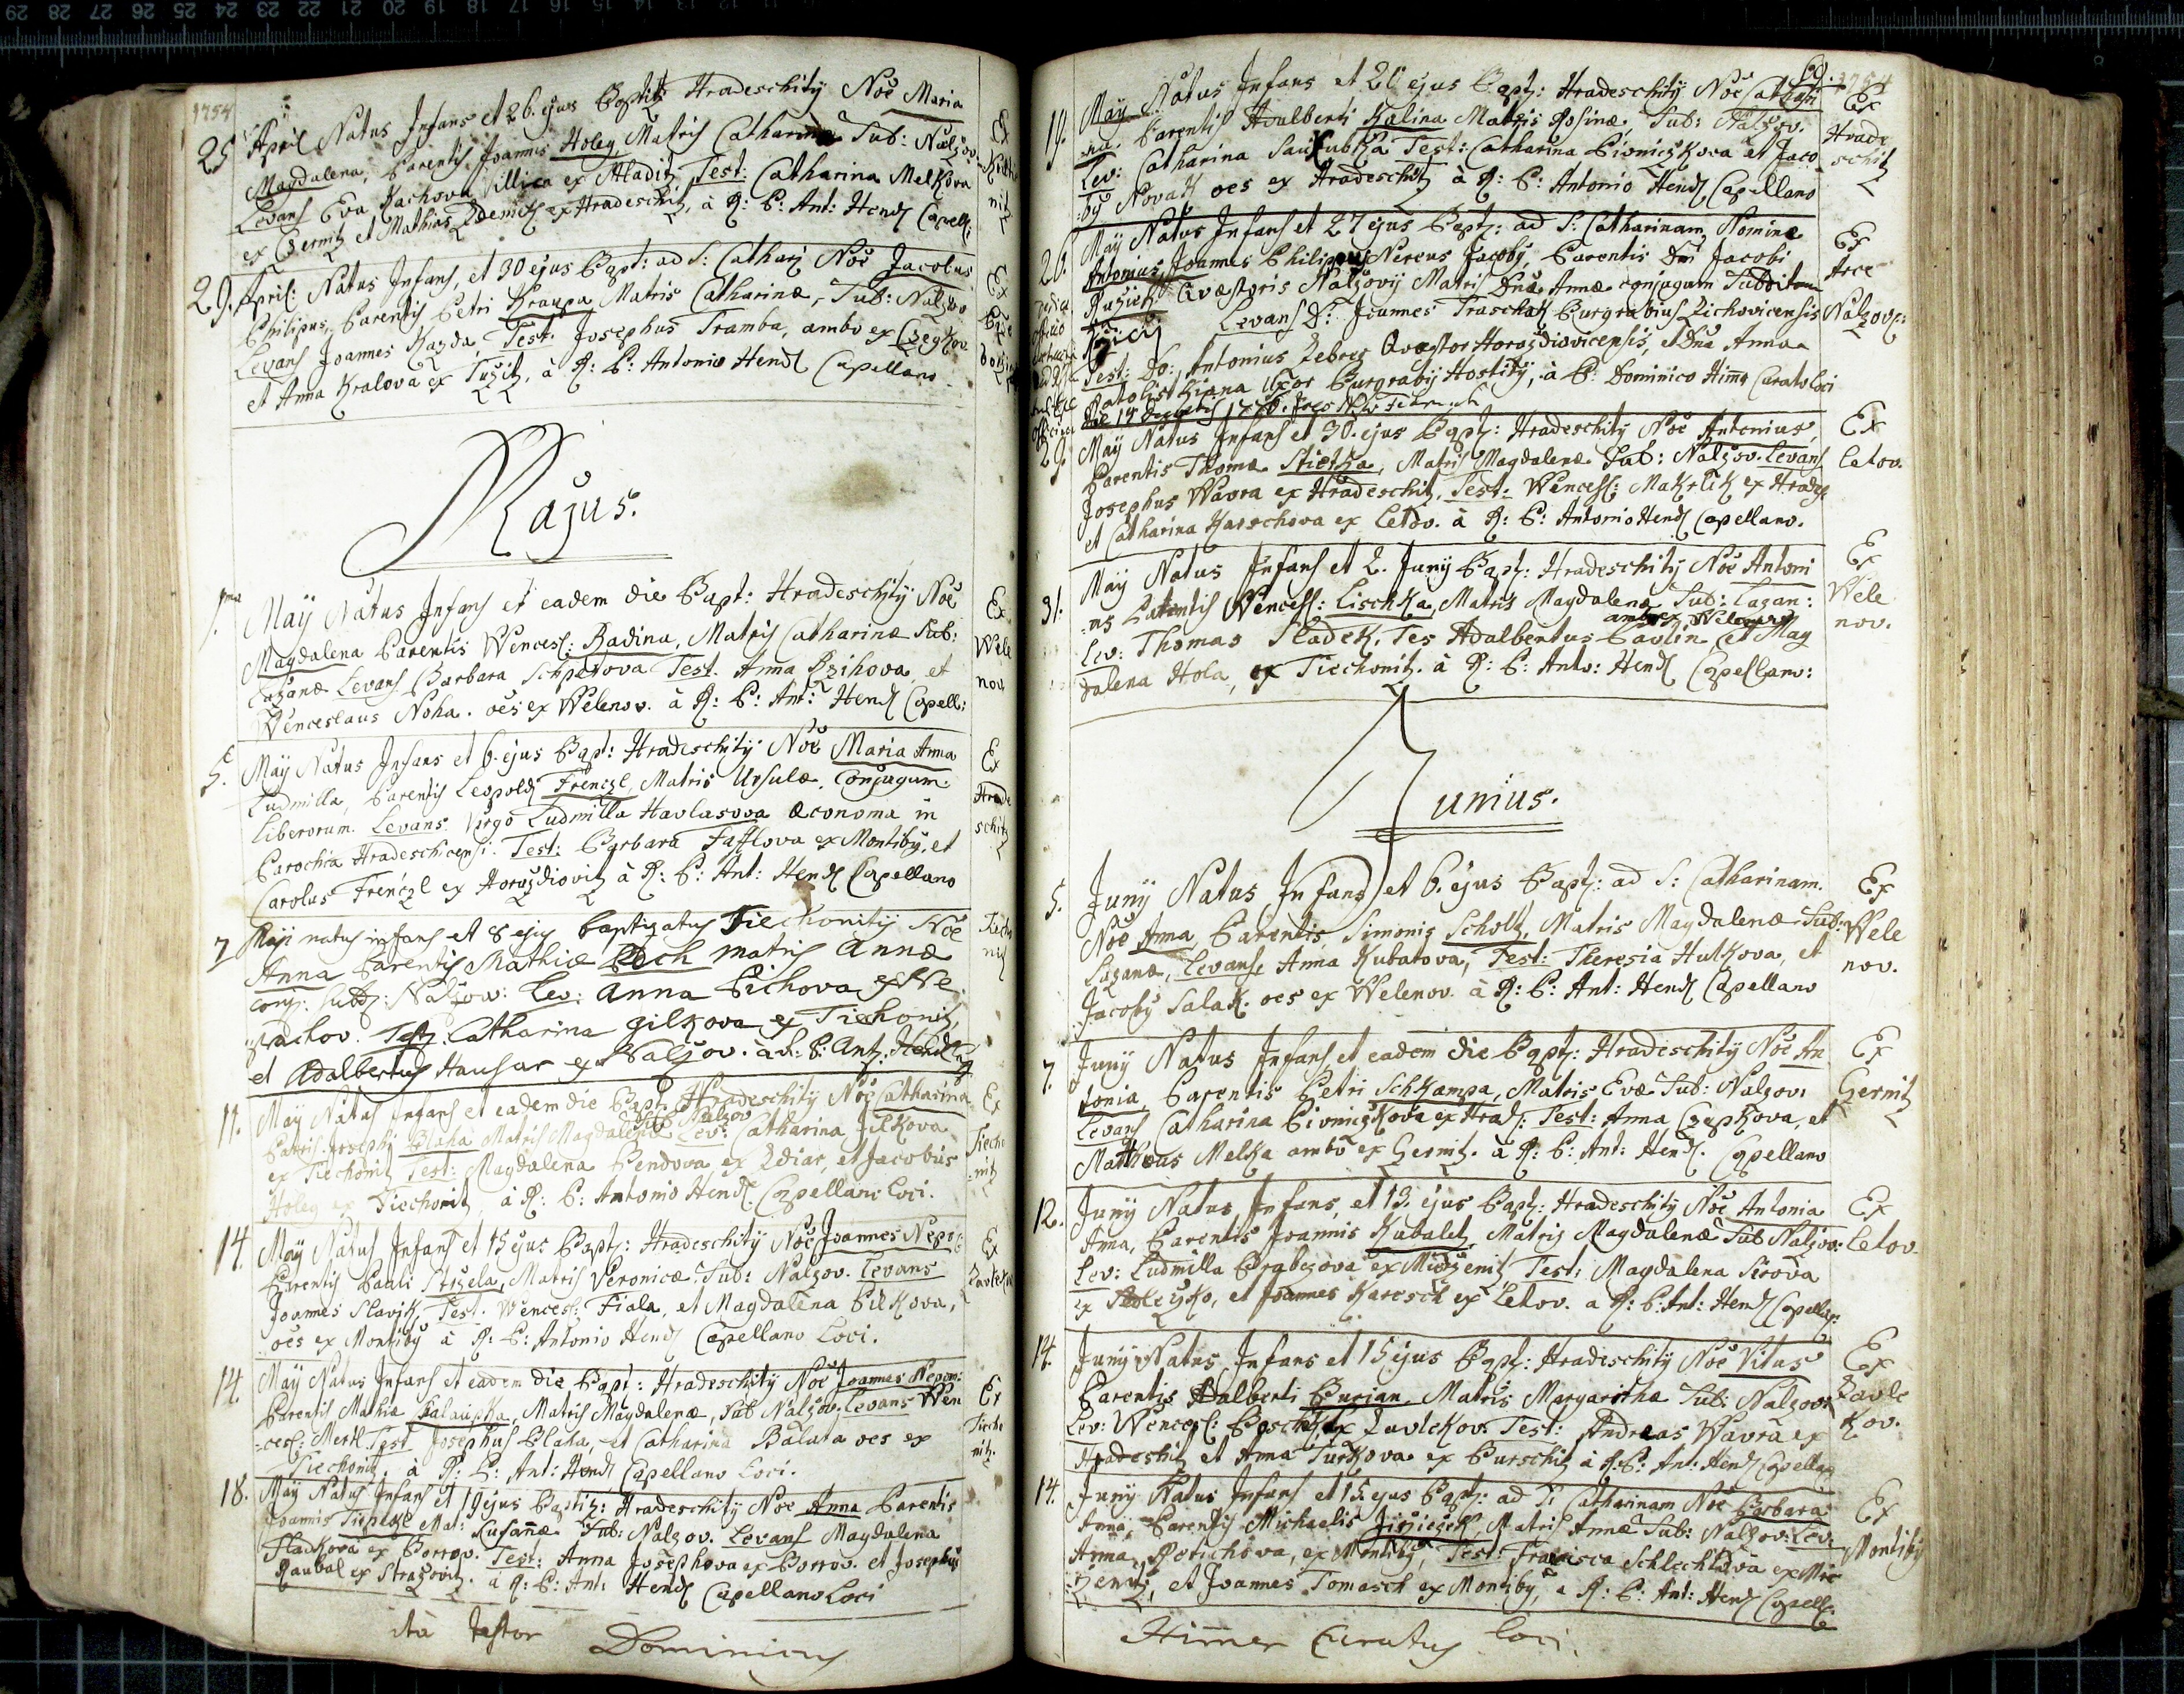 1754
25 April Natus Infans et 26. ejus Baptiz: Hradeschitÿ Noẽ Maria Ex
Magdalena, Parentis Joannis Holey, Matris Catharinæ Sub: Nalzov.
Levans Eva Kachova Villica ex Mladitz Test: Catharina Melkova nitz
ex Czernitz et Mathias Zdenick ex Hradeschitz, à R: P: Ant: Hendl Capell:
29. April: Natus Infans, et 30 ejus Bapt: ad S: Cathari Noẽ Jacobus Ex
Philipus, Parentis Petri Kraupa Matris Catharinæ, Sub: Nalzov
Levans Joannes Kazda, Test: Josephus Tramba, ambo ex Czegkov
et Anna Kralova ex Tuzitz, à R: P: Antonio Hendl Capellano
Majus.
1ma Maÿ Natus Infans et eadem die Bapt: Hradeschitÿ Noẽ Ex
Magdalena Parentis Wencesl: Radina, Matris Catharinæ Sub: Wele
Lazanæ Levans Barbara Schpetova Test. Anna Rzihova, et nov
Wenceslaus Noha. oẽs ex Welenov. à R: P: Ant: Hendl Capell:
5. Maÿ Natus Infans et 6. ejus Bapt: Hradeschitÿ Noẽ Maria Anna Ex
Ludmilla, Parentis Leopoldi Frenczl, Matris Ursulæ. Conjugum Hrade
Liberorum. Levans Virgo Ludmilla Havlasova Œconoma in schitz
Parochia Hradeschicensi. Test: Barbara Fafflova ex Montibÿ, et
Carolus Frenczl ex Horazdiovitz à R: P: Ant: Hendl Capellano
7 Maji natus infans et 8 ejus baptizatus Tiechonitij Noẽ
Anna Parentis Mathiæ Pech matris Annæ
conj: subd: Nalzov: Lev: Anna Pichova ex Ne
prachov. Test: Catharina Gilkova ex Tiechonitz
et Adalbertus Hausar ex Nalzov. à R: P: Ant: Hendl
11. Maÿ Natus Infans et eadem die Bapt: Hradeschitÿ Noẽ Catharina Ex
Sub Nalzov
Patris Josephi Blaha Matris Magdalenæ Lev: Catharina Jilkova Tiecho
ex Tiechonitz Test: Magdalena Bendova ex Zdiar, et Jacobus nitz
Holey ex Tiechonitz, à R: P: Antonio Hendl Capellano Loci.
14. Maÿ Natus Infans et 15 ejus Bapt: Hradeschitÿ Noẽ Joannes Nepo: Ex
Parentis Pauli Strzela, Matris Veronicæ. Sub: Nalzov. Levans Zavlekov
Joannes Slavik, Test. Wencesl: Fiala, et Magdalena Pilkova,
oẽs ex Montibÿ à R: P: Antonio Hendl Capellano Loci.
14. Maÿ Natus Infans et eadem die Bapt: Hradeschitÿ Noẽ Joannes Nepom: Ex
Parentis Mathiæ Kalaupka, Matris Magdalenæ, Sub Nalzov. Levans Wen Tiecho
cesl: Mertl Test Josephus Blaha, et Catharina Balata oẽs ex nitz.
Tiechonitz. à R: P: Ant: Hendl Capellano Loci.
18. Maÿ Natus Infans et 19 ejus Baptiz: Hradeschitÿ Noẽ Anna Parentis
Joannis Mat: Susañæ Sub: Nalzov. Levans Magdalena
Sladkova ex Borrov. Test: Anna Josephova ex Borrov. et Josephus
Raubal ex Strazovitz. à R: P: Ant: Hendl Capellano Loci
ita testor Dominicus
69. 1754
19. Maÿ Natus Infans et 20 ejus Bapt: Hradeschitÿ Noẽ Cathari Ex
na. Parentis Adalberti Kalina Matris Rosinæ, Sub: Nalzov. Hrade
Lev: Catharina Saukubka Test: Catharina Pivniczkova et Jaco schitz
bÿ Novak oẽs ex Hradeschitz à R: P: Antonio Hendl Capellano
26. Maÿ Natus Infans et 27 ejus Bapt: ad S: Catharinam Nomine Ex
Antonius, Joannes Philipus Nereus Jacobÿ, Parentis Dni Jacobi Arce
Ruzicz Quæstoris Nalzovij Matris Dnæ Annæ conjugum Subditorum Nalzov:
Levans D: Joannes Traschak Burgrabius Zichovicensis
Test: Do: Antonius Zebrcz Quæstor Horazdiovicensis, et Dna Anna
Uxor Burgrabij Hostitÿ, à P: Dominico Himer Curato Loci
29 Maÿ Natus Infans et 30. ejus Bapt: Hradeschitÿ Noẽ Antonius Ex
Parentis Thomæ Stietka, Matris Magdalenæ Sub: Nalzov. Levans Letov.
Josephus Wavra ex Hradeschitz, Test: Wencesl: Makrlik ex Hradz
et Catharina Karschova ex Letov. à R: P: Antonio Hendl Capellano.
31. Maÿ Natus Infans et 2. Junÿ Bapt: Hradeschitÿ Noẽ Antoni Ex
us Parentis Wencesl: Lischka, Matris Magdalenæ Sub: Lazan: Wele
ambo ex Welenov nov.
Lev: Thomas Sladek, Tes Adalbertus Pavlin et Mag
dalena Hola, ex Tiechonitz. à R: P: Anto: Hendl Capellano:
Junius.
5. Junÿ Natus Infans et 6. ejus Bapt: ad S: Catharinam. Ex
Noẽ Anna, Parentis Simonis Scholtz, Matris Magdalenæ Sub: Wele
Lazanæ, Levans Anna Kubatova, Test: Theresia Hulkova, et nov.
Jacobÿ Salak. oẽs ex Welenov. à R: P: Ant: Hendl Capellano
7. Junÿ Natus Infans et eadem die Bapt: Hradeschitÿ Noẽ An Ex
tonia, Parentis Petri Schkampa, Matris Evæ Sub: Nalzov: Gernitz
Levans Catharina Pivniczkova ex Hrad: Test: Anna Czapkova, et
Mattheus Melka ambo ex Gernitz. à R: P: Ant: Hendl. Capellano
12. Junÿ Natus Infans, et 13. ejus Bapt: Hradeschitÿ Noẽ Antonia Ex
Anna, Parentis Joannis Kubaletz, Matris Magdalenæ Sub Nalzov: Letov.
Lev: Ludmilla Brabczova ex Miczenitz, Test: Magdalena Sirova
ex, et Joannes Karesch ex Letov. a R: P: Ant: Hendl Capellan:
14. Junÿ Natus Infans et 15 ejus Bapt: Hradeschitÿ Noẽ Vitus Ex
Parentis Adalberti Burian, Matris Margarithæ Sub: Nalzov: Zavle
Lev: Wencesl: Boschek, ex Zavlekov. Test: Andreas Wavra ex kov.
Hradeschitz et Anna Turkova ex Purschitz à R: P: Ant: Hendl Capellan
14. Junÿ Natus Infans et 15 ejus Bapt: ad S: Catharinam Noẽ Barbara Ex
Anna, Parentis Michaelis Jirziczek, Matris Annæ Sub: Nalzov: Lev: Montibÿ
Anna Petrichova, ex Montibÿ, Test: Francisca Schlechtova ex Mic
zenitz, et Joannes Tomasch ex Montibÿ, a R: P: Ant: Hendl Capell:
Himer Curatus Loci.